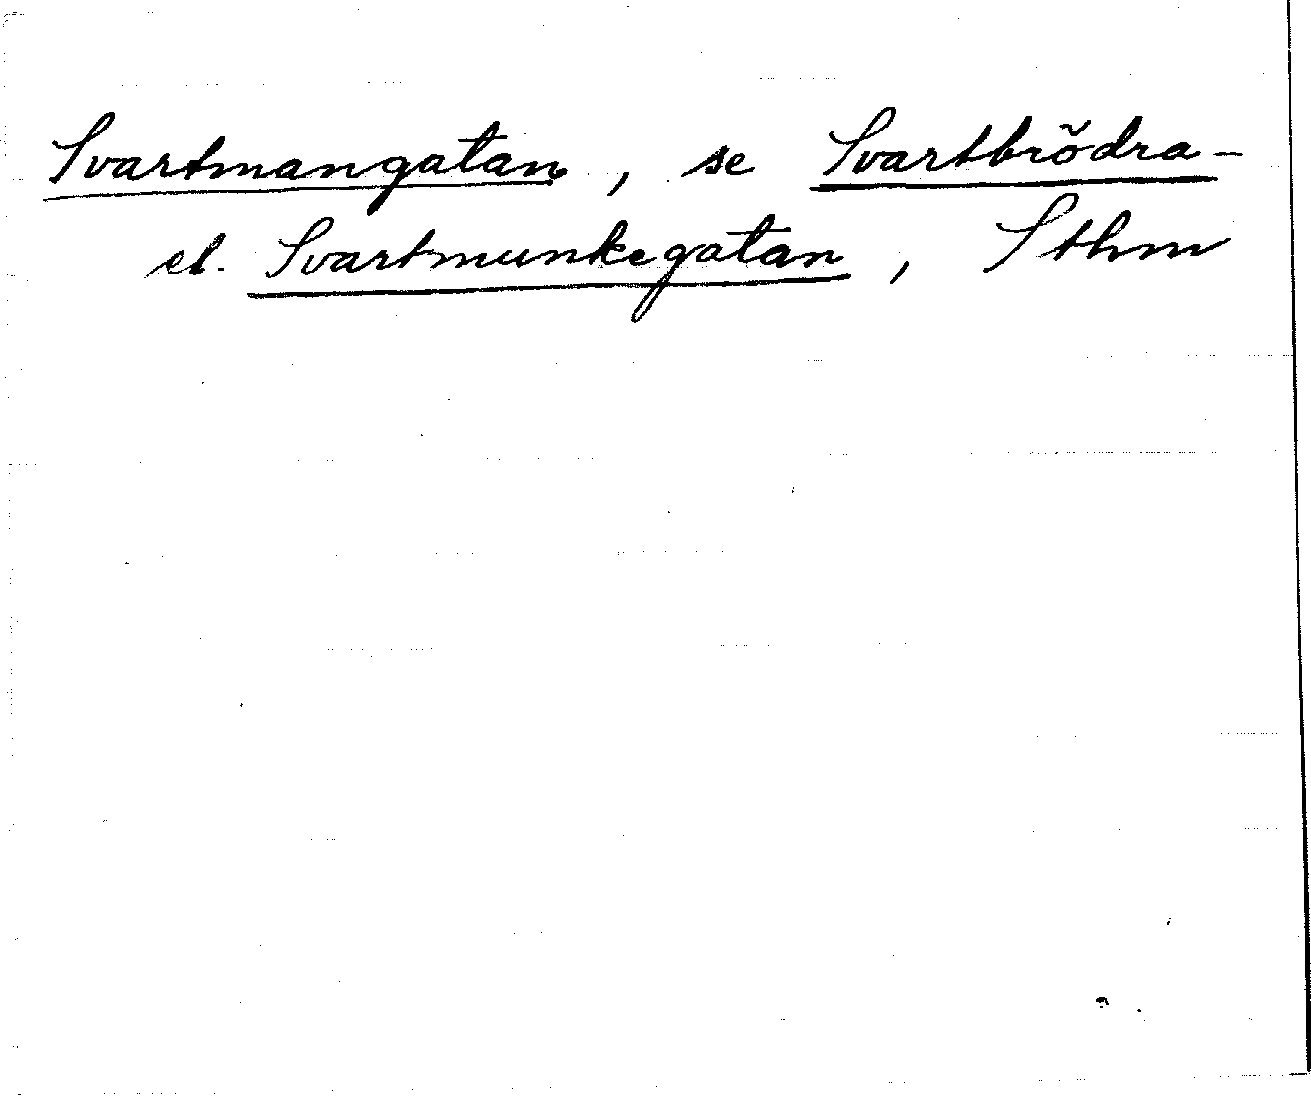 Svartmangatan, se Svartbrödra-
el. Svartmunkegatan, Sthm